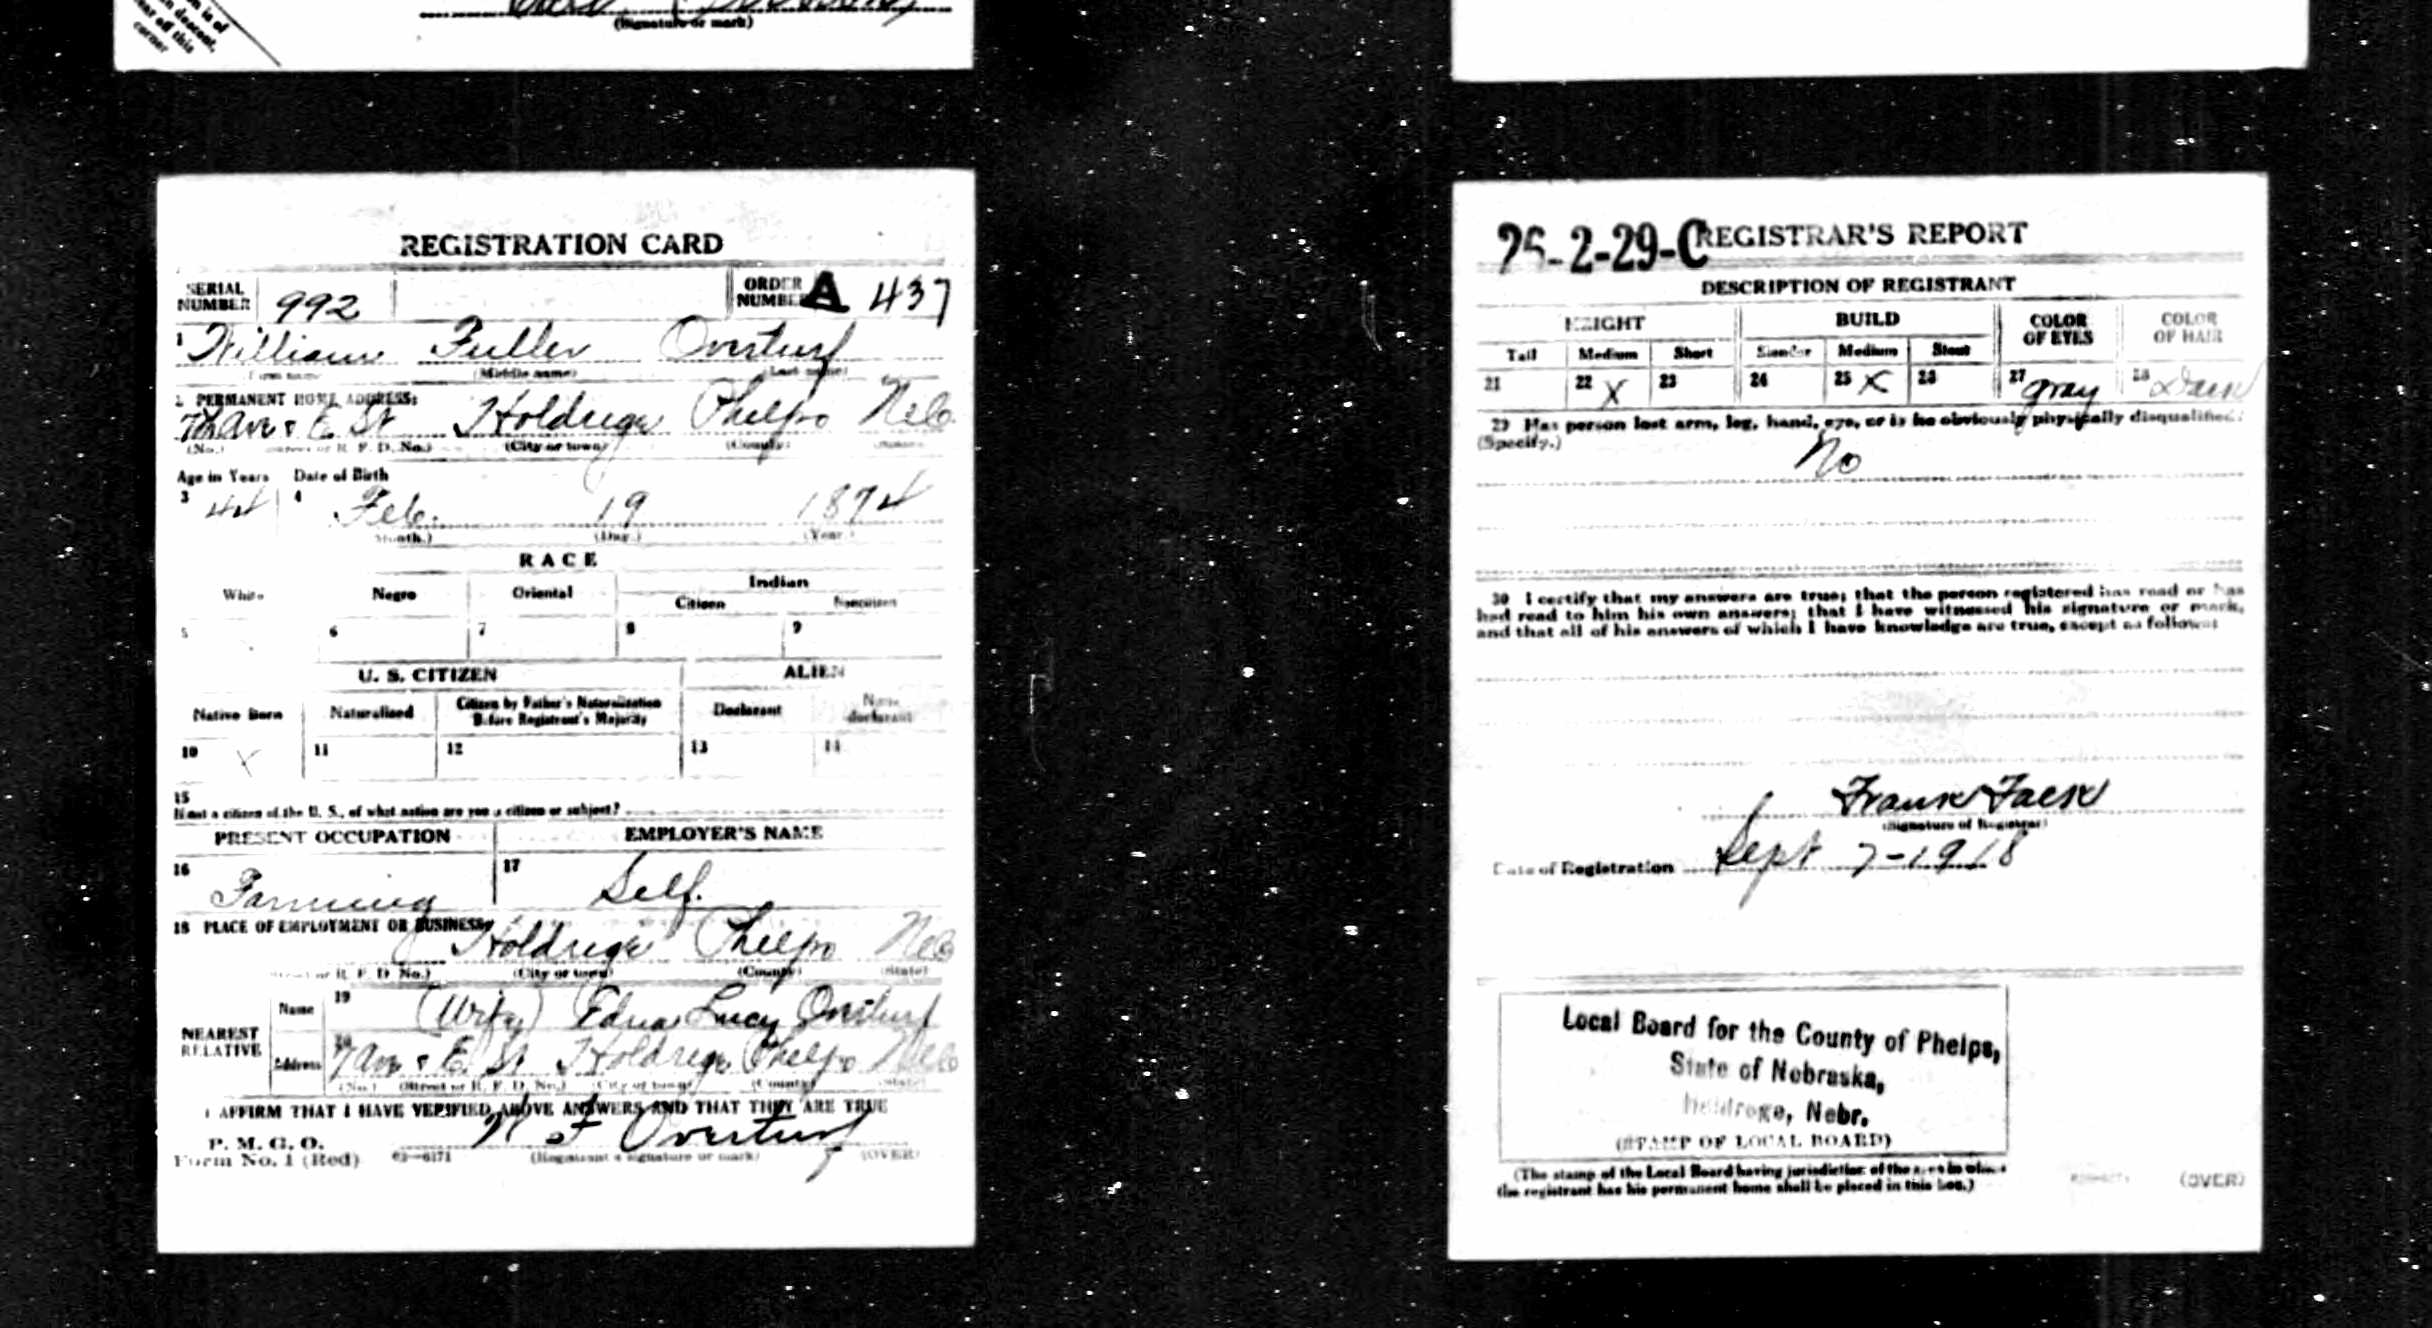 n is of
n descent,
ear off this
corner
(Signature or mark)
REGISTRATION CARD
SERIAL NUMBER 992 ORDER NUMBER A 437
1 William Fuller Overturf
(Middle name) (Last name)
2 PERMANENT HOME ADDRESS:
7th Ave & E St Holdrege Phelps Neb
(No.) (Street or R. F. D. No.) (City or town) (County)
Age in Years Date of Birth
3 44 4 Feb. 19 1874
(Month.) (Day.) (Year.)
RACE
White Negro Oriental Indian
Citizen Noncitizen
5 6 7 8 9
U. S. CITIZEN ALIEN
Native Born Naturalized Citizen by Father's Naturalization Before Registrant's Majority Declarant Non-declarant
10 X 11 12 13 14
15
If not a citizen of the U. S., of what nation are you a citizen or subject?
PRESENT OCCUPATION EMPLOYER'S NAME
16 Farming 17 Self.
18 PLACE OF EMPLOYMENT OR BUSINESS:
Holdrege Phelps Neb
(Street or R. F. D. No.) (City or town) (County) (State)
NEAREST RELATIVE Name 19 (Wife) Edna Lucy Overturf
Address 20 7 Ave & E St Holdrege Phelps Neb
(No.) (Street or R. F. D. No.) (City or town) (County) (State)
I AFFIRM THAT I HAVE VERIFIED ABOVE ANSWERS AND THAT THEY ARE TRUE
P. M. G. O.
Form No. 1 (Red) 03—6171 W F Overturf
(Registrant's signature or mark) (OVER)
26-2-29-C REGISTRAR'S REPORT
DESCRIPTION OF REGISTRANT
HEIGHT BUILD COLOR OF EYES COLOR OF HAIR
Tall Medium Short Slender Medium Stout
21 22 X 23 24 25 X 26 27 gray 28 Dark
29 Has person lost arm, leg, hand, eye, or is he obviously physically disqualified?
(Specify.)
No
30 I certify that my answers are true; that the person registered has read or has
had read to him his own answers; that I have witnessed his signature or mark,
and that all of his answers of which I have knowledge are true, except as follows:
Frank
(Signature of Registrar)
Date of Registration Sept 7-1918
Local Board for the County of Phelps,
State of Nebraska,
Holdrege, Nebr.
(STAMP OF LOCAL BOARD)
(The stamp of the Local Board having jurisdiction of the area in which
the registrant has his permanent home shall be placed in this box.)
(OVER)